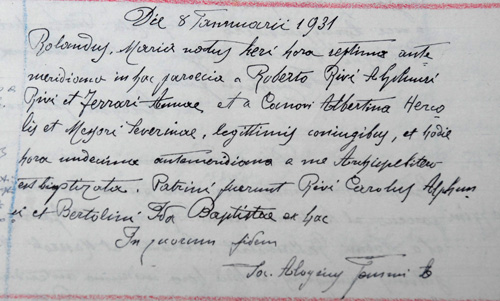 Die 8 Jannuarii 1931
Rolandus, Maria natus heri hora septima ante-
meridiana in hac paroecia a Roberto Rivi Alphonsi
Rivi et Ferrari Annae, et a Canovi Albertina Herco-
lis et Messori Severinae, legittimis coniugibus, et hodie
hora undecima antemeridiana a me Archipresbitero
est baptizata. Patrini fuerunt Rivi Carolus Alphon-
si et Bertolini Ida Baptistae ex hac
In quorum fidem
Sac. Aloysius